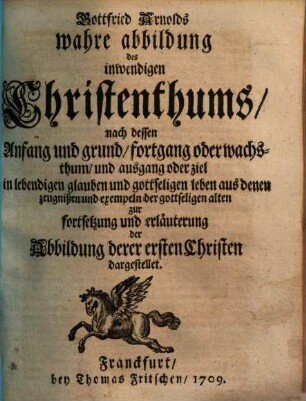 Gottfried Arnolds
wahre abbildung
des
inwendigen
Christenthums/
nach dessen
Anfang und grund/ fortgang oder wachs-
thum/ und ausgang oder ziel
in lebendigen glauben und gottseligen leben aus denen
zeugnißen und exempeln der gottseligen alten
zur
fortsetzung und erläuterung
der
Abbildung derer ersten Christen
dargestellet.
Franckfurt/
bey Thomas Fritschen/ 1709.